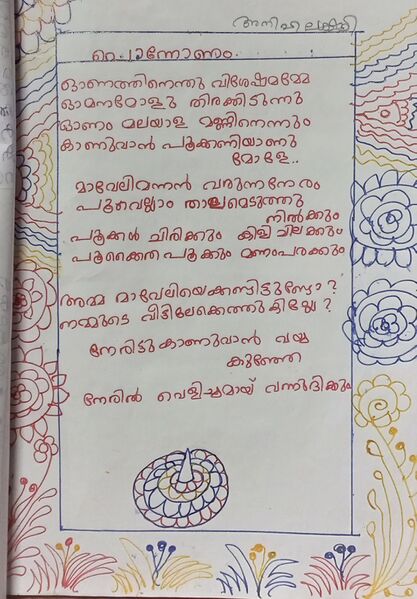 അനിഷ ലക്ഷ്മി
പൊന്നോണം
ഓണത്തിനെന്തു വിശേഷമമ്മേ
ഓമനമോളു തിരക്കിടുന്നു
ഓണം മലയാള മണ്ണിനെന്നും
കാണുവാൻ പൂക്കണിയാണു
മോളേ..
മാവേലിമന്നൻ വരുന്നനേരം
പൂവെല്ലാം താലമെടുത്തു
നിൽക്കും
പൂക്കൾ ചിരിക്കും കിളി ചിലക്കും
പൂക്കൈത പൂക്കും മണംപരക്കും
അമ്മ മാവേലിയെക്കണ്ടിട്ടുണ്ടോ?
നമ്മുടെ വീട്ടിലേക്കെത്തുകില്ലേ?
നേരിട്ടുകാണുവാൻ വയ്യ
കുഞ്ഞേ
നേരിൻ വെളിച്ചമായ് വന്നുദിക്കും